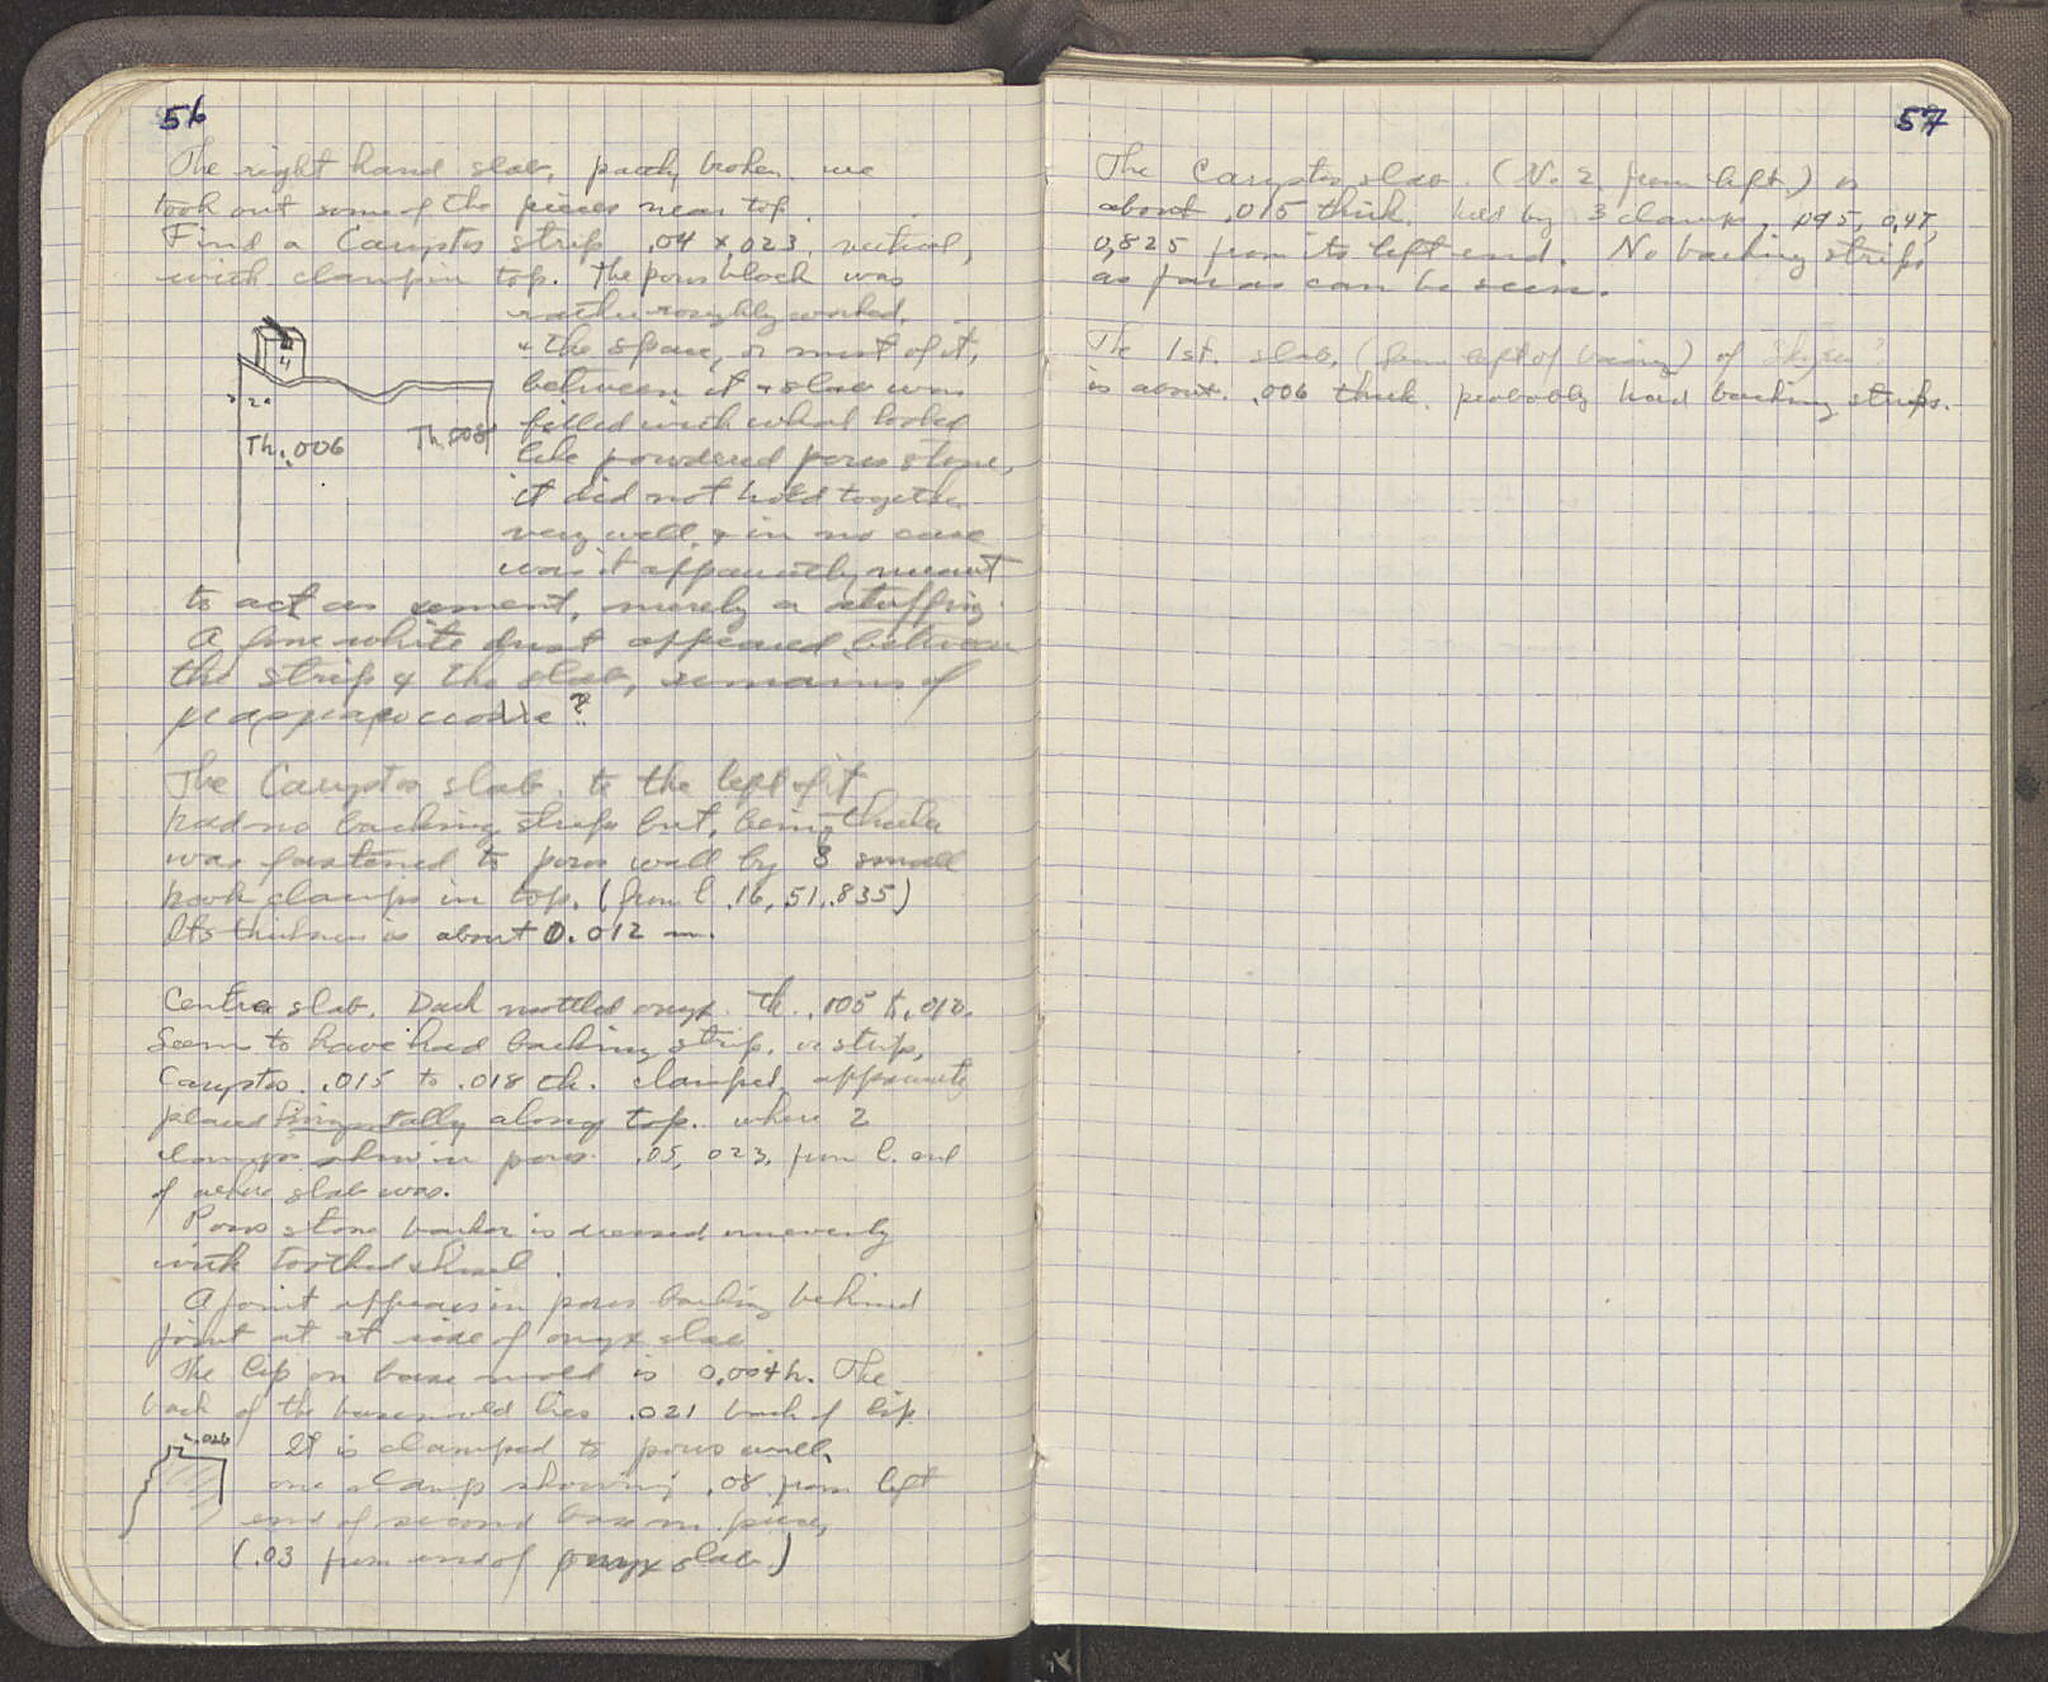 56
The right hand slab, partly broken. we
took out some of the pieces near top.
Find a Carystos strip .04 x .023, vertical,
with clamp in top. The poros block was
rather roughly worked,
& the space, or most of it,
between it & slab was
filled with what looked
like powdered poros stone,
it did not hold together
very well, & in no case
was it apparently meant
Th. .006
Th .008
to act as cement, merely a stuffing.
A fine white dust appeared between
the strip & the slab, remains of
μαρμαροκολλα?
The Carystos slab, to the left of it
had no backing strips but, being thicker
was fastened to poros wall by 3 small
hook clamps in top. (from l .16, .51, .835)
Its thickness is about 0.012 m.
Centre slab. Dark mottled onyx. Th. .005 to .010.
Seems to have had backing strip, or strips,
Carystos. .015 to .018 th. clamped, apparently
placed horizontally along top. where 2
clamps show in poros. .05, 023, from l. end
of where slab was.
Poros stone backer is dressed unevenly
with toothed chisel.
A joint appears in poros backing behind
joint at rt side of onyx slab
The lip on base mold is 0,004 h. The
back of the base mould lies .021 back of lip.
.026
It is clamped to poros wall,
one clamp showing .08 from left
end of second base m. piece,
(.03 from end of onyx slab.)
57
The Carystos slab. (No 2. from left.) is
about .015 thick, held by 3 clamps, .095, 0,47,
0,825 from its left end. No backing strips
as far as can be seen.
The 1st. slab, (from left of facing) of Skyros?
is about .006 thick. probably had backing strips.